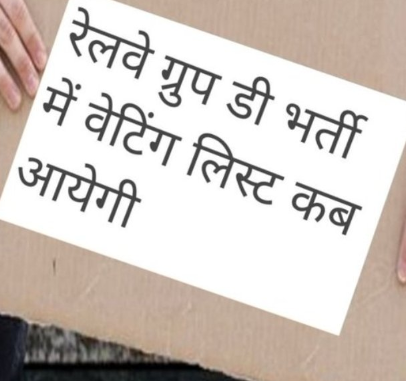 रेलवे ग्रुप डी भर्ती
में वेटिंग लिस्ट कब
आयेगी